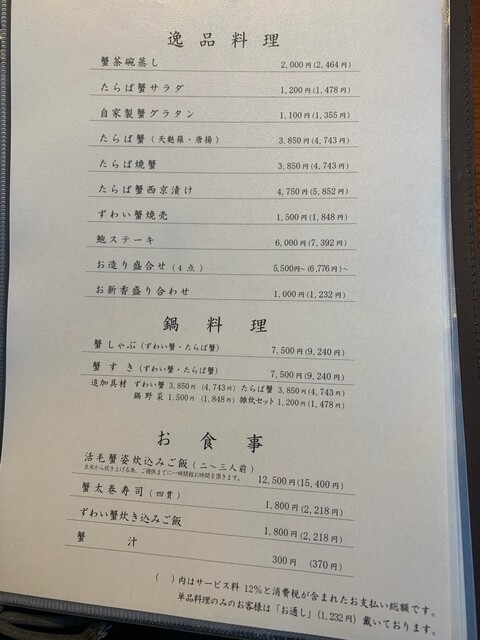 逸品料理
蟹茶碗蒸し 2,000円(2,464円)
たらば蟹サラダ 1,200円(1,478円)
自家製蟹グラタン 1,100円(1,355円)
たらば蟹(天麩羅・唐揚) 3,850円(4,743円)
たらば焼蟹 3,850円(4,743円)
たらば蟹西京漬け 4,750円(5,852円)
ずわい蟹焼売 1,500円(1,848円)
鮑ステーキ 6,000円(7,392円)
お造り盛合せ(4点) 5,500円~(6,776円)~
お新香盛り合わせ 1,000円(1,232円)
鍋料理
蟹しゃぶ(ずわい蟹・たらば蟹) 7,500円(9,240円)
蟹すき(ずわい蟹・たらば蟹) 7,500円(9,240円)
追加具材 ずわい蟹 3,850円(4,743円) たらば蟹 3,850円(4,743円)
鍋野菜 1,500円(1,848円) 雑炊セット 1,200円(1,478円)
お食事
活毛蟹姿炊込みご飯(二~三人前) 12,500円(15,400円)
生米から炊き上げる為、ご提供までに一時間程お時間を頂きます。
蟹太巻寿司(四貫) 1,800円(2,218円)
ずわい蟹炊き込みご飯 1,800円(2,218円)
蟹汁 300円(370円)
( )内はサービス料 12%と消費税が含まれたお支払い総額です。
単品料理のみのお客様は「お通し」(1,232円)戴いております。